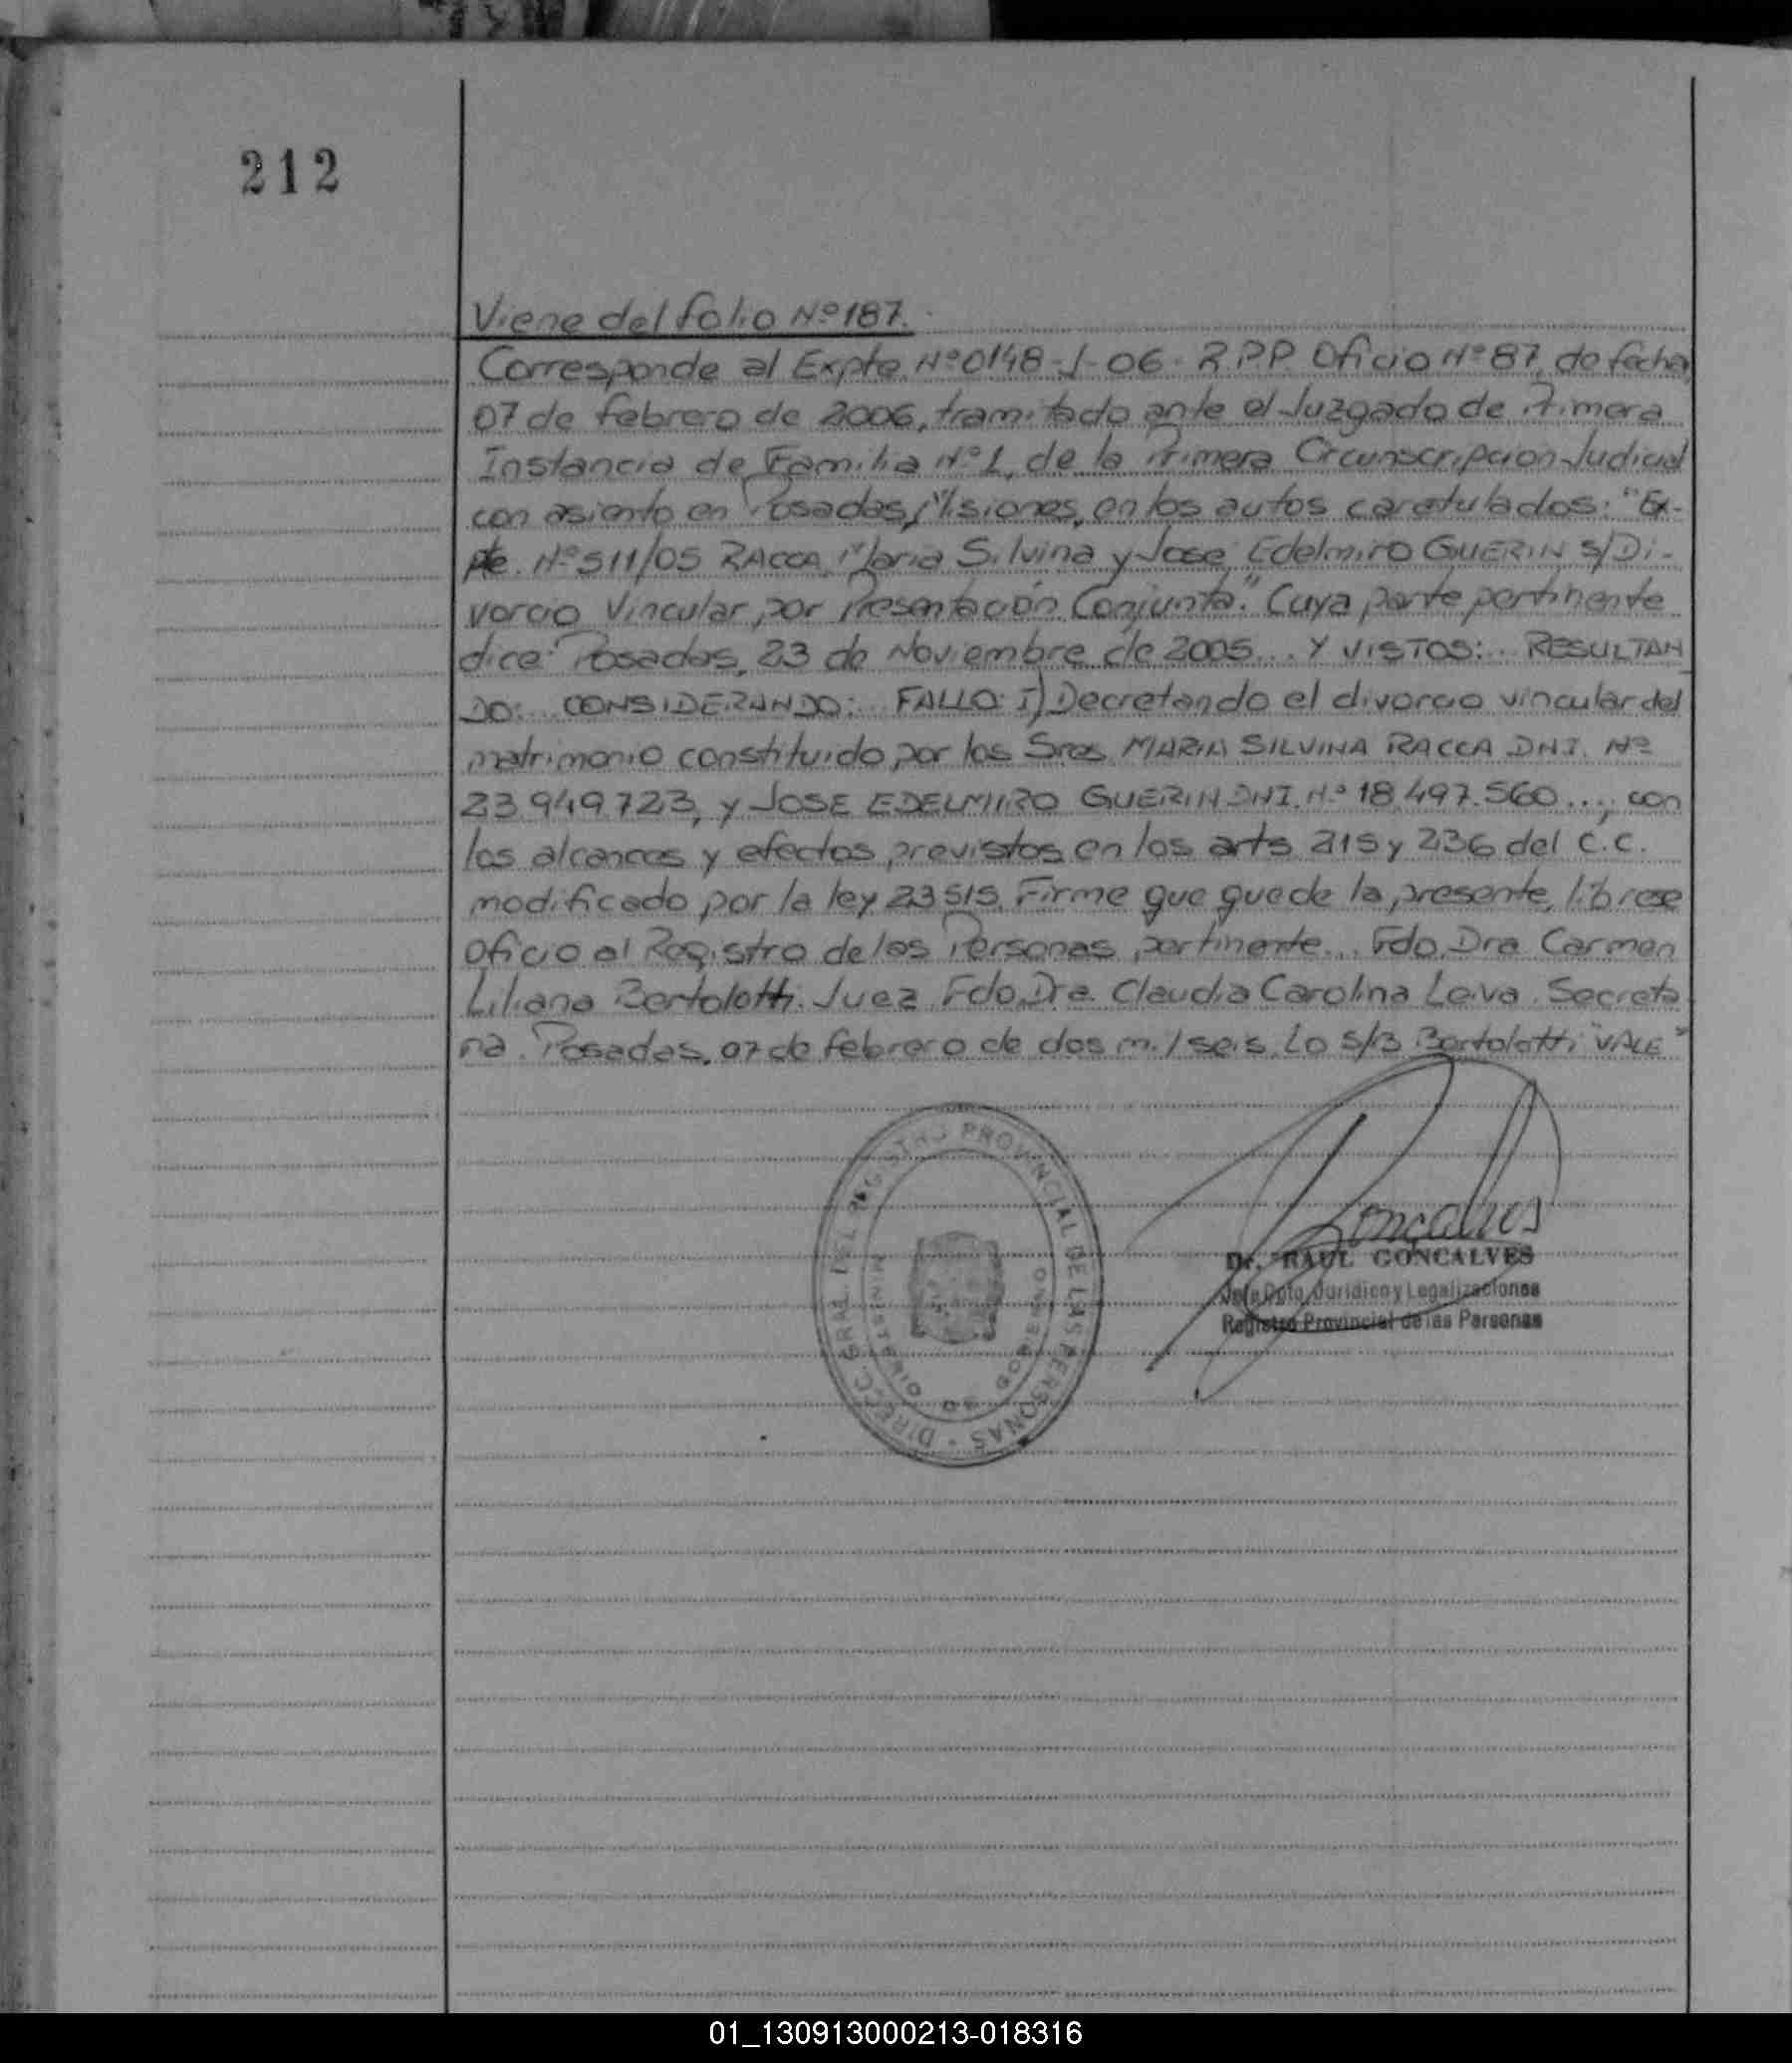 212
Viene del folio Nº 187.
Corresponde al Expte. Nº 0148-J-06-R.P.P. Oficio Nº 87, de fecha
07 de febrero de 2006, tramitado ante el Juzgado de Primera
Instancia de Familia Nº 1, de la Primera Circunscripcion Judicial
con asiento en Posadas, Misiones, en los autos caratulados: "Ex-
pte. Nº 511/05 RACCA, Maria Silvina y Jose Edelmiro GUERIN S/Di-
vorcio Vincular por Presentación Conjunta." Cuya parte pertinente
dice: Posadas, 23 de Noviembre de 2005... Y VISTOS:.. RESULTAN
DO:... CONSIDERANDO:... FALLO: I) Decretando el divorcio vincular del
matrimonio constituido por los Sres. MARIA SILVINA RACCA DNI. Nº
23.949.723, y JOSE EDELMIRO GUERIN DNI. Nº 18.497.560..., con
los alcances y efectos previstos en los arts 215 y 236 del C.C.
modificado por la ley 23515. Firme que quede la presente, librese
oficio al Registro de las Personas pertinente... Fdo. Dra. Carmen
Liliana Bertolotti. Juez. Fdo. Dra. Claudia Carolina Leiva. Secreta
ria. Posadas, 07 de febrero de dos mil seis. Lo S/B Bertolotti "VALE"
DIRECC. GRAL. DEL REGISTRO PROVINCIAL DE LAS PERSONAS
MINISTERIO DE GOBIERNO
Goncalves
Dr. RAUL GONCALVES
Jefe Dpto. Juridico y Legalizaciones
Registro Provincial de las Personas
01_130913000213-018316